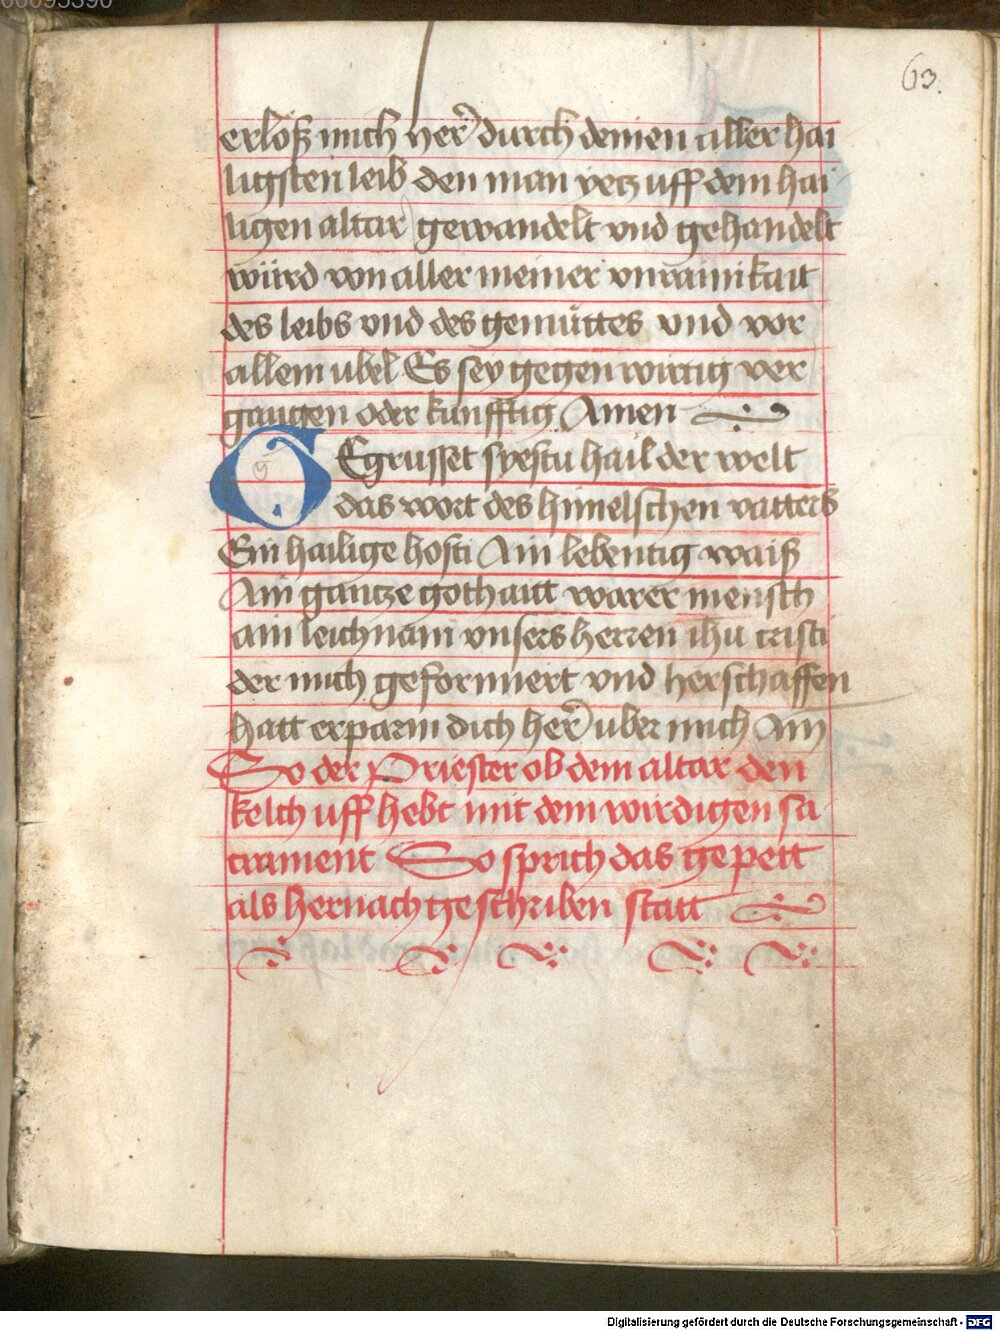 00095390
63.
erlöß mich her durch deinen aller hai
ligsten leib den man yetz uff dem hai
ligen altar gewandelt vnd gehandelt
würd von aller meiner vnrainikait
des leibs vnd des gemüttes vnd vor
allem ubel Es sey gegenwirtig ver
gangen oder kunfftig Amen
GEgrusset syestu hail der welt
das wort des himelschen vatters
Ein hailige hosti Ain lebentig waiß
Ain gantze gothaitt warer mensch
ain leichnam vnsers herren ihu cristi
der mich geformiert vnd herschaffen
hatt erparm dich her uber mich Am
So der Priester ob dem altar den
kelch uff hebt mit dem wirdigen sa
crament So sprich das gepett
als hernach geschriben statt
Digitalisierung gefördert durch die Deutsche Forschungsgemeinschaft - DFG